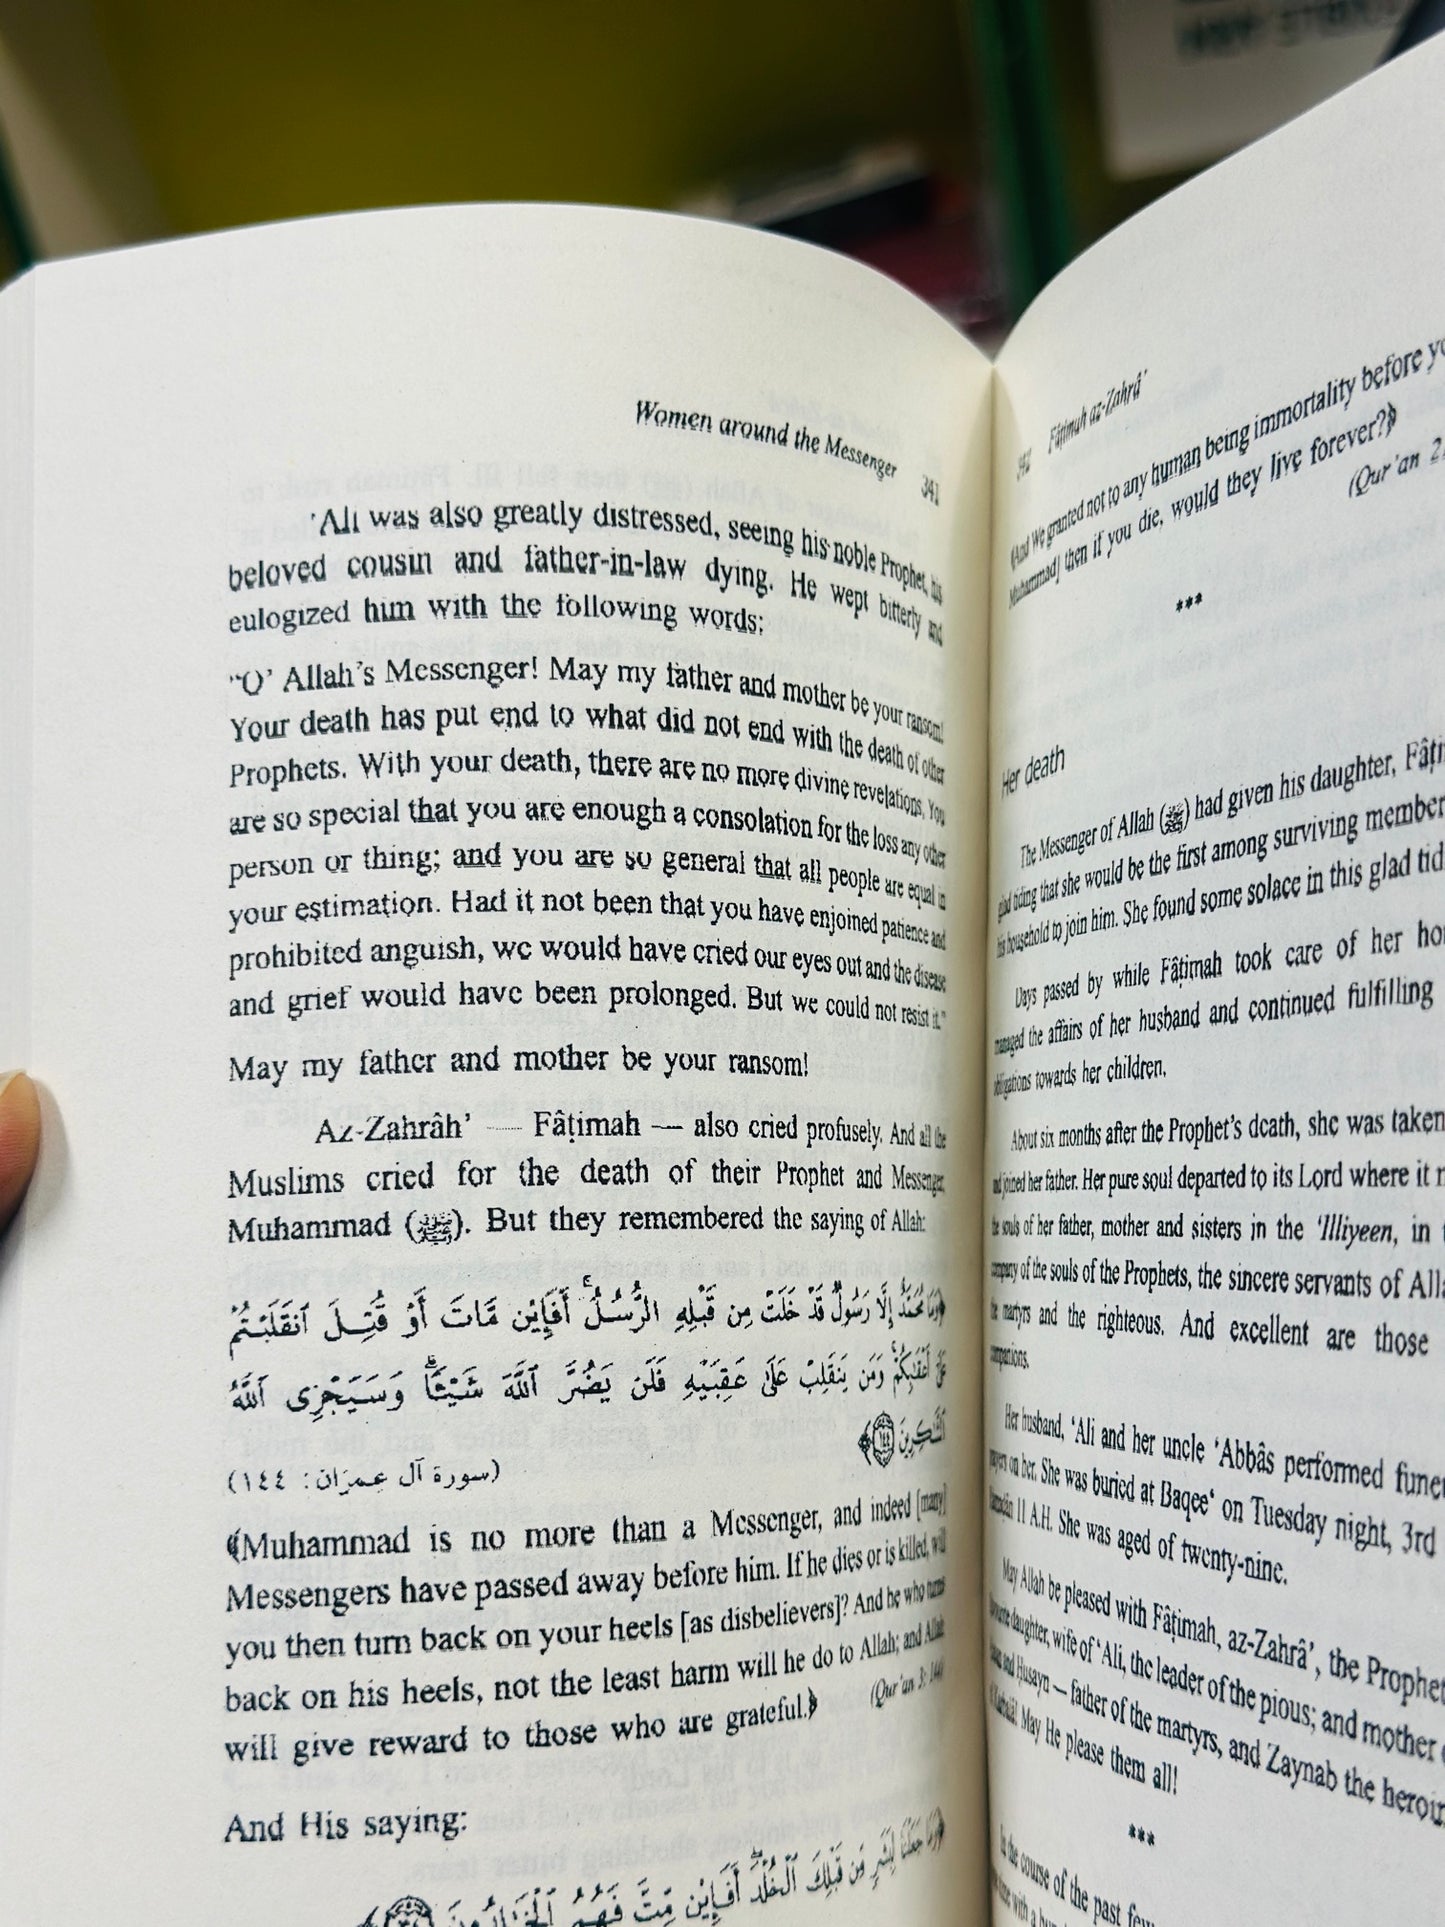 Women around the Messenger 341
'Ali was also greatly distressed, seeing his noble Prophet, his
beloved cousin and father-in-law dying. He wept bitterly and
eulogized him with the following words:
"O' Allah's Messenger! May my father and mother be your ransom!
Your death has put end to what did not end with the death of other
Prophets. With your death, there are no more divine revelations. You
are so special that you are enough a consolation for the loss any other
person or thing; and you are so general that all people are equal in
your estimation. Had it not been that you have enjoined patience and
prohibited anguish, we would have cried our eyes out and the disease
and grief would have been prolonged. But we could not resist it."
May my father and mother be your ransom!
Az-Zahrâh' — Fâṭimah — also cried profusely. And all the
Muslims cried for the death of their Prophet and Messenger,
Muhammad (ﷺ). But they remembered the saying of Allah:
﴿وَمَا مُحَمَّدٌ إِلَّا رَسُولٌ قَدْ خَلَتْ مِن قَبْلِهِ ٱلرُّسُلُ أَفَإِي۟ن مَّاتَ أَوْ قُتِلَ ٱنقَلَبْتُمْ
عَلَىٰٓ أَعْقَـٰبِكُمْ وَمَن يَنقَلِبْ عَلَىٰ عَقِبَيْهِ فَلَن يَضُرَّ ٱللَّهَ شَيْـًٔا وَسَيَجْزِى ٱللَّهُ
ٱلشَّـٰكِرِينَ ١٤٤﴾
(سورة آل عمران: ١٤٤)
﴾Muhammad is no more than a Messenger, and indeed [many]
Messengers have passed away before him. If he dies or is killed, will
you then turn back on your heels [as disbelievers]? And he who turns
back on his heels, not the least harm will he do to Allah; and Allah
will give reward to those who are grateful.﴿ (Qur'an 3: 144)
And His saying:
﴿وَمَا جَعَلْنَا لِبَشَرٍ مِّن قَبْلِكَ ٱلْخُلْدَ أَفَإِي۟ن مِّتَّ فَهُمُ ٱلْخَـٰلِدُونَ
342 Fâṭimah az-Zahrâ'
﴾And We granted not to any human being immortality before
Muhammad] then if you die, would they live forever?﴿
(Qur'an
***
Her death
The Messenger of Allah (ﷺ) had given his daughter,
glad tiding that she would be the first among surviving
his household to join him. She found some solace in this glad
Days passed by while Fâṭimah took care of her
managed the affairs of her husband and continued fulfilling
obligations towards her children.
About six months after the Prophet's death, she was taken
and joined her father. Her pure soul departed to its Lord where it
the souls of her father, mother and sisters in the 'Illiyeen, in
company of the souls of the Prophets, the sincere servants of
the martyrs and the righteous. And excellent are those
companions.
Her husband, 'Ali and her uncle 'Abbâs performed
prayers on her. She was buried at Baqee' on Tuesday night, 3rd
Ramadân 11 A.H. She was aged of twenty-nine.
May Allah be pleased with Fâṭimah, az-Zahrâ', the
favourite daughter, wife of 'Ali, the leader of the pious; and mother
and Husayn — father of the martyrs, and Zaynab the
of Karbalâ! May He please them all!
***
In the course of the past